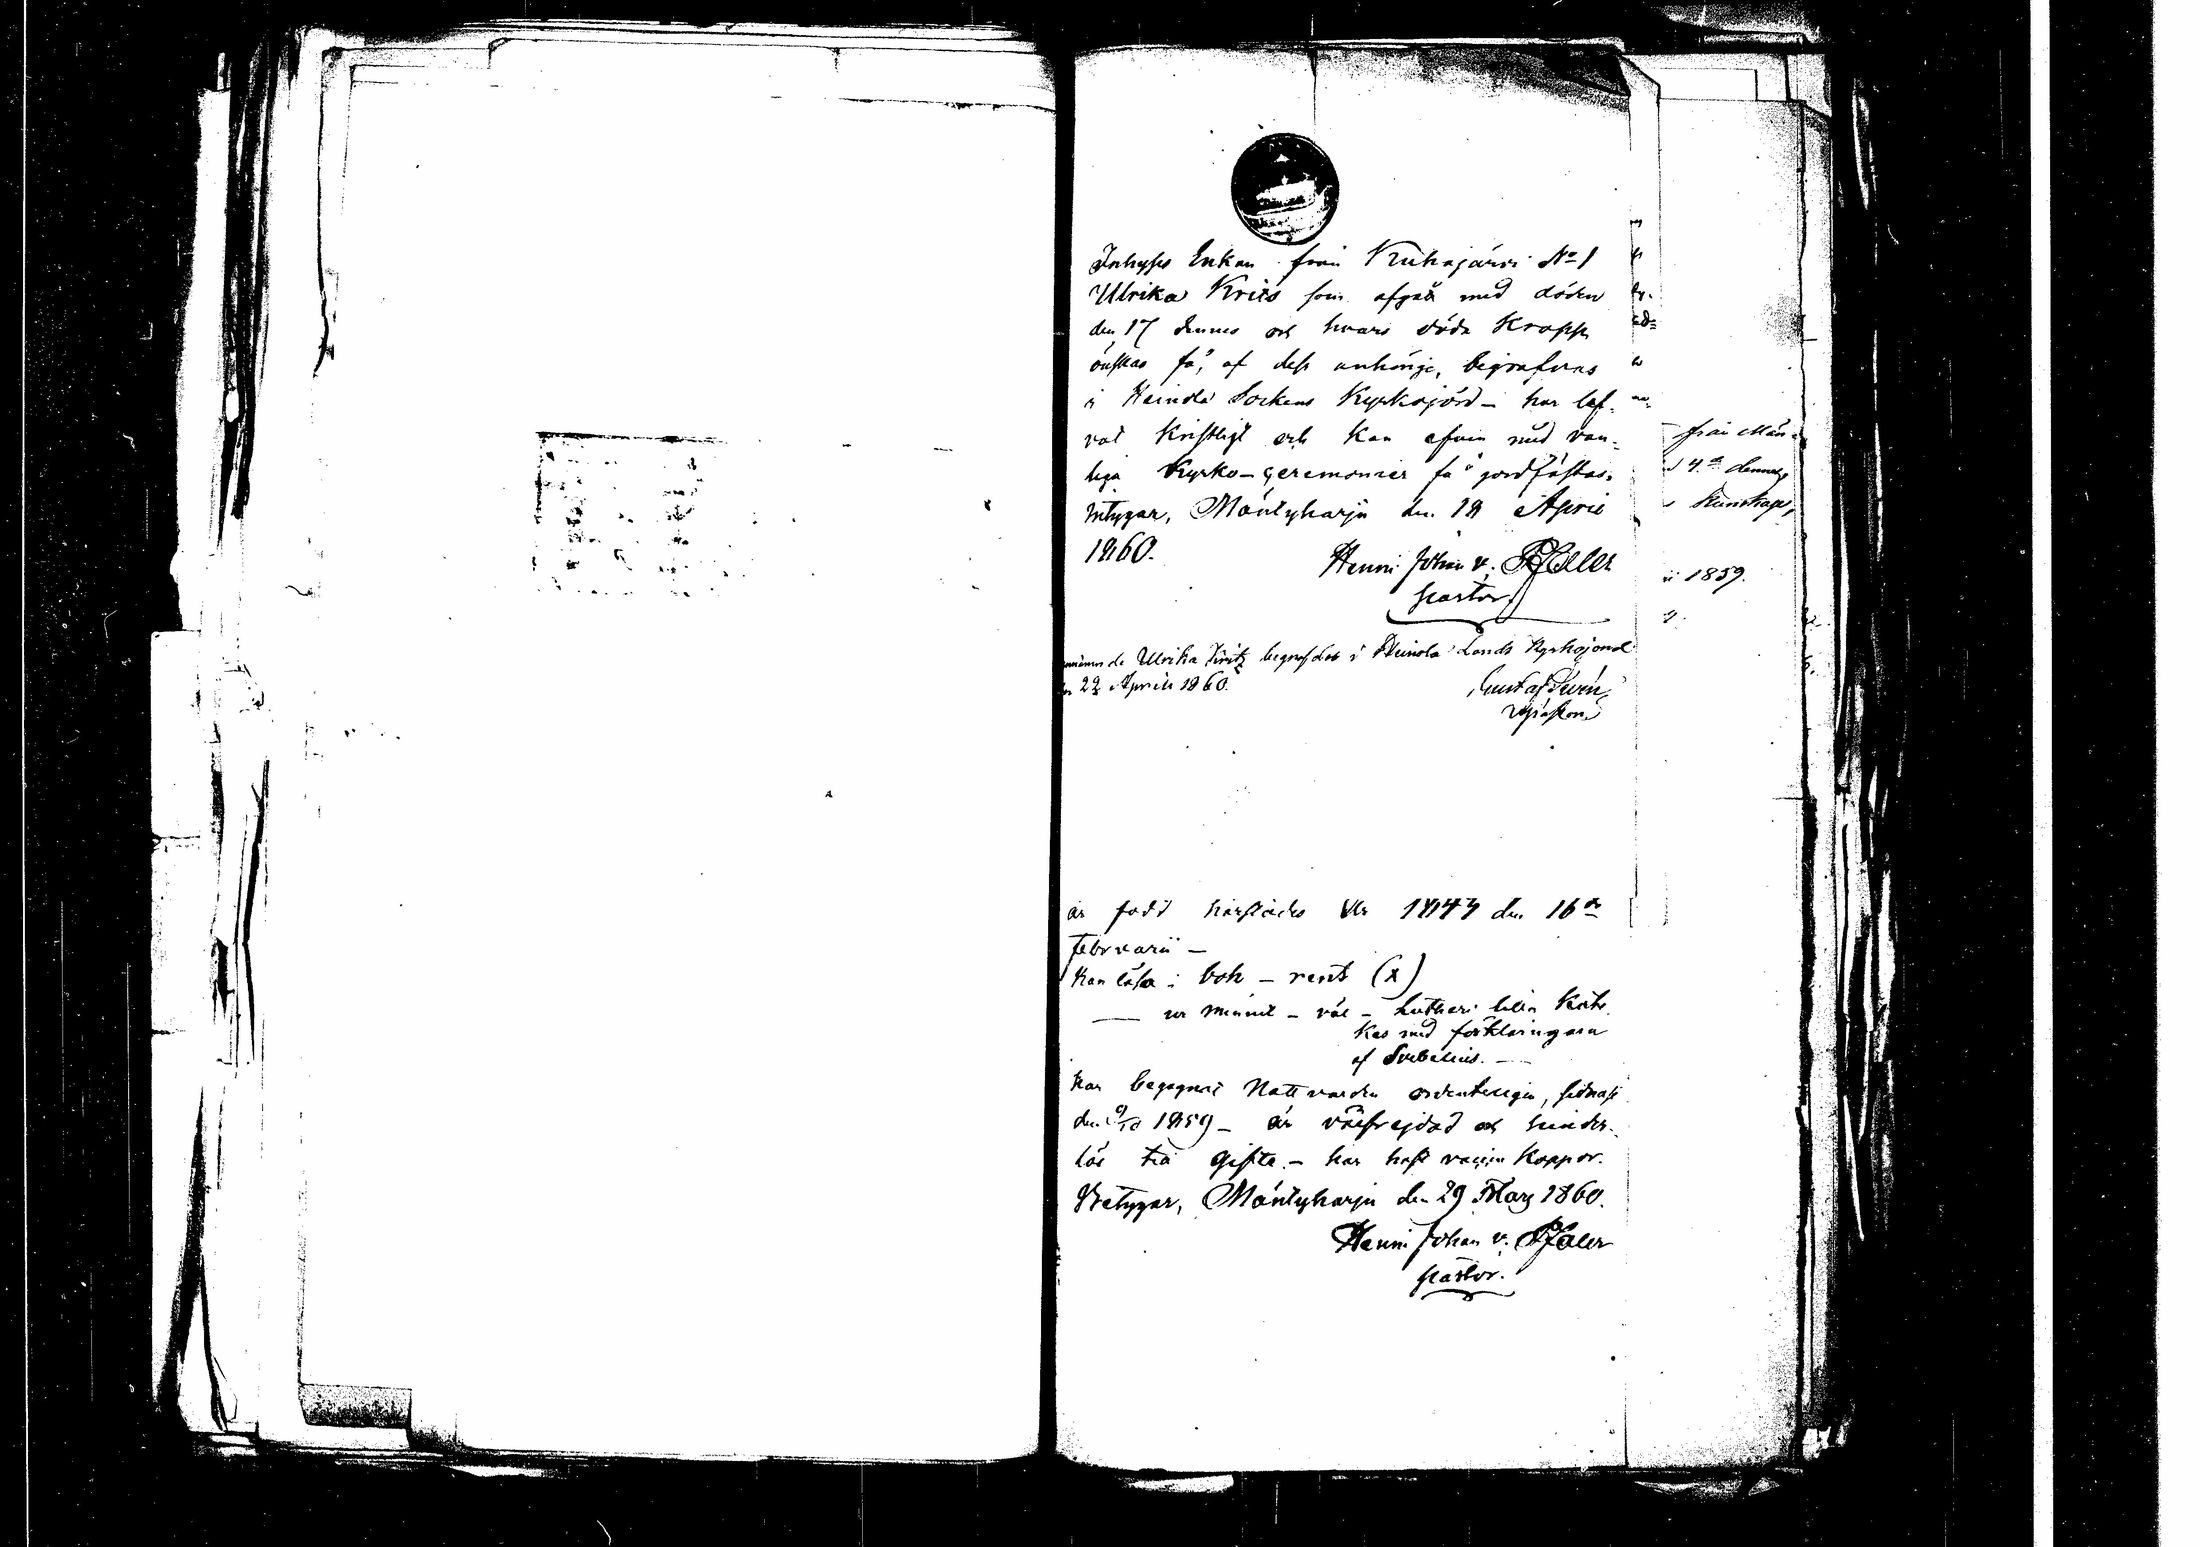 Inhyses Enkan från Kuhajärvi No 1
Ulrika Krits som afgått med döden
den 17 dennes och hvars döda Kropp
önskas få, af dess anhörige, begrafvas
i Heinola Sockens Kyrkojord – har lef-
vat Kristligt och Kan efven med van-
liga Kyrko-ceremonier få jordfästas.
Intygar, Mäntyharju den 18 April
1860.
Henric Johan v. Pfaler
Pastor.
Ulrika Kritz begrafdes i Heinola Lands Kyrkojord
22 April 1860.
Gustaf
från Män-
4de dennes
Kunskaps,
1859.
är född härstädes År 1843 den 16de
februarii –
Kan läsa i bok – rent (x)
— ur minnet – väl – Lutheri lilla Kate-
kes med förklaringarna
af Svebilius. —
har begagnat Nattvarden ordentligen, sednast
den 9/10 1859 – är välfrejdad och hinder-
lös till gifte. – har haft vaccin Koppor.
Betygar, Mäntyharju den 29 Mars 1860.
Henric Johan v. Pfaler
Pastor.